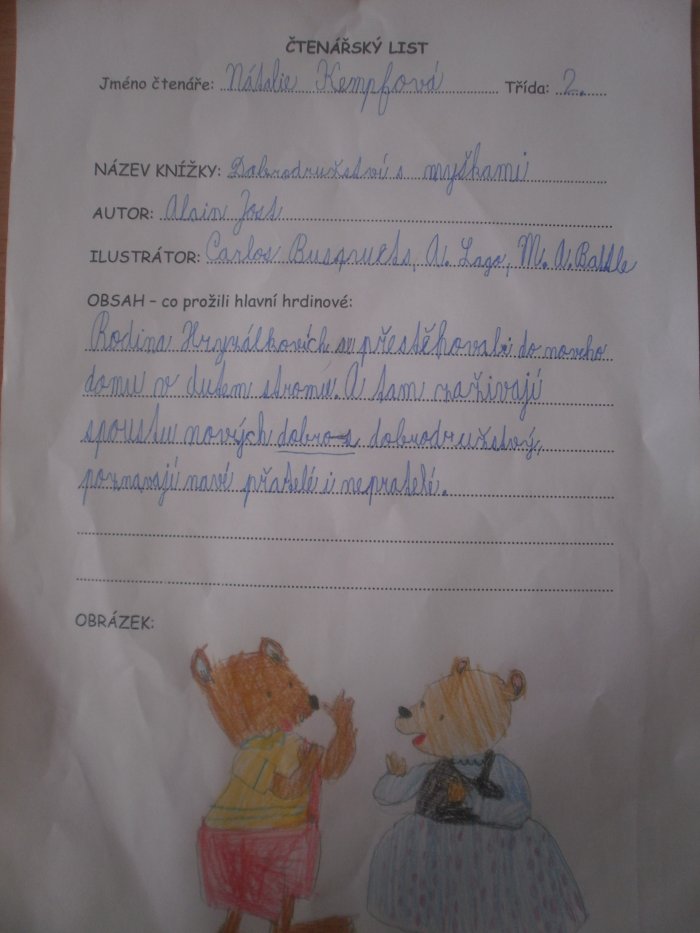 ČTENÁŘSKÝ LIST
Jméno čtenáře: Nátalie Kempfová Třída: 2.
NÁZEV KNÍŽKY: Dobrodružství s myškami
AUTOR: Alain Jost
ILUSTRÁTOR: Carlos Busquets, A. Lago, M. A. Batlle
OBSAH – co prožili hlavní hrdinové:
Rodina Hryzálkovích se přestěhovali do noveho
domu v dutem stromu. A tam zaživají
spoustu nových dobro-s dobrodružstvý,
poznavají navé přatelé i nepratelé.
OBRÁZEK: